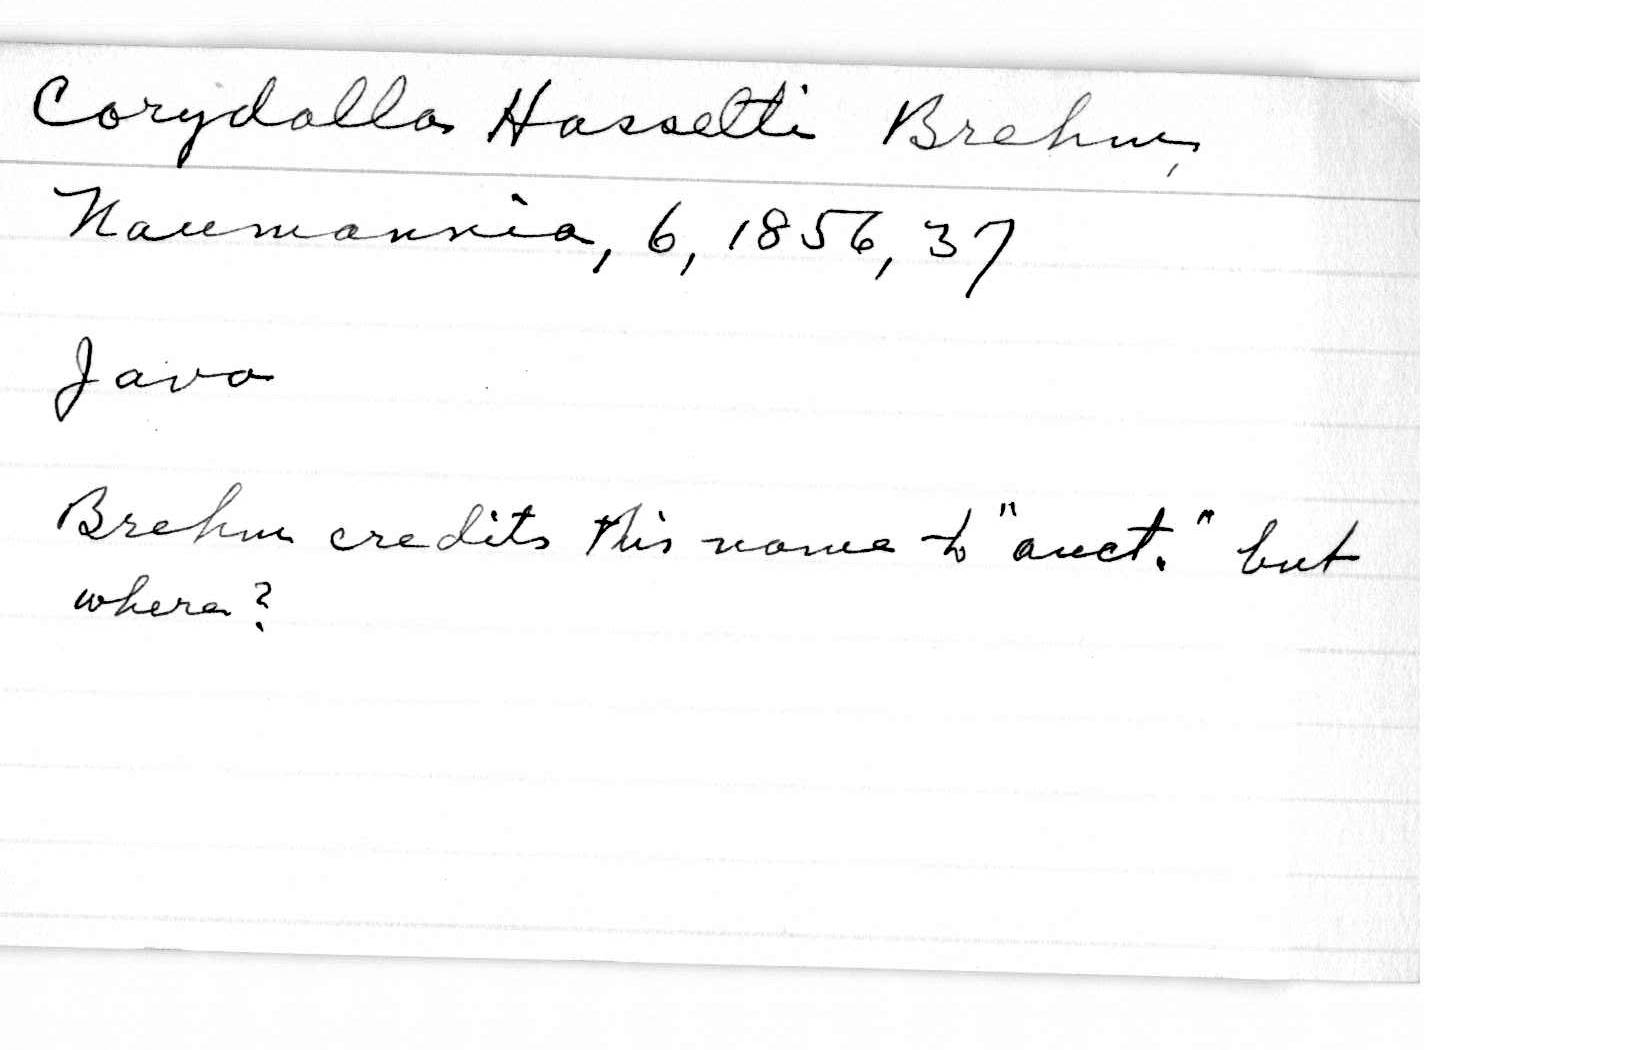 Corydalla Hasselti Brehm,
Naumannia, 6, 1856, 37
Java
Brehm credits this name to "auct." but
where?